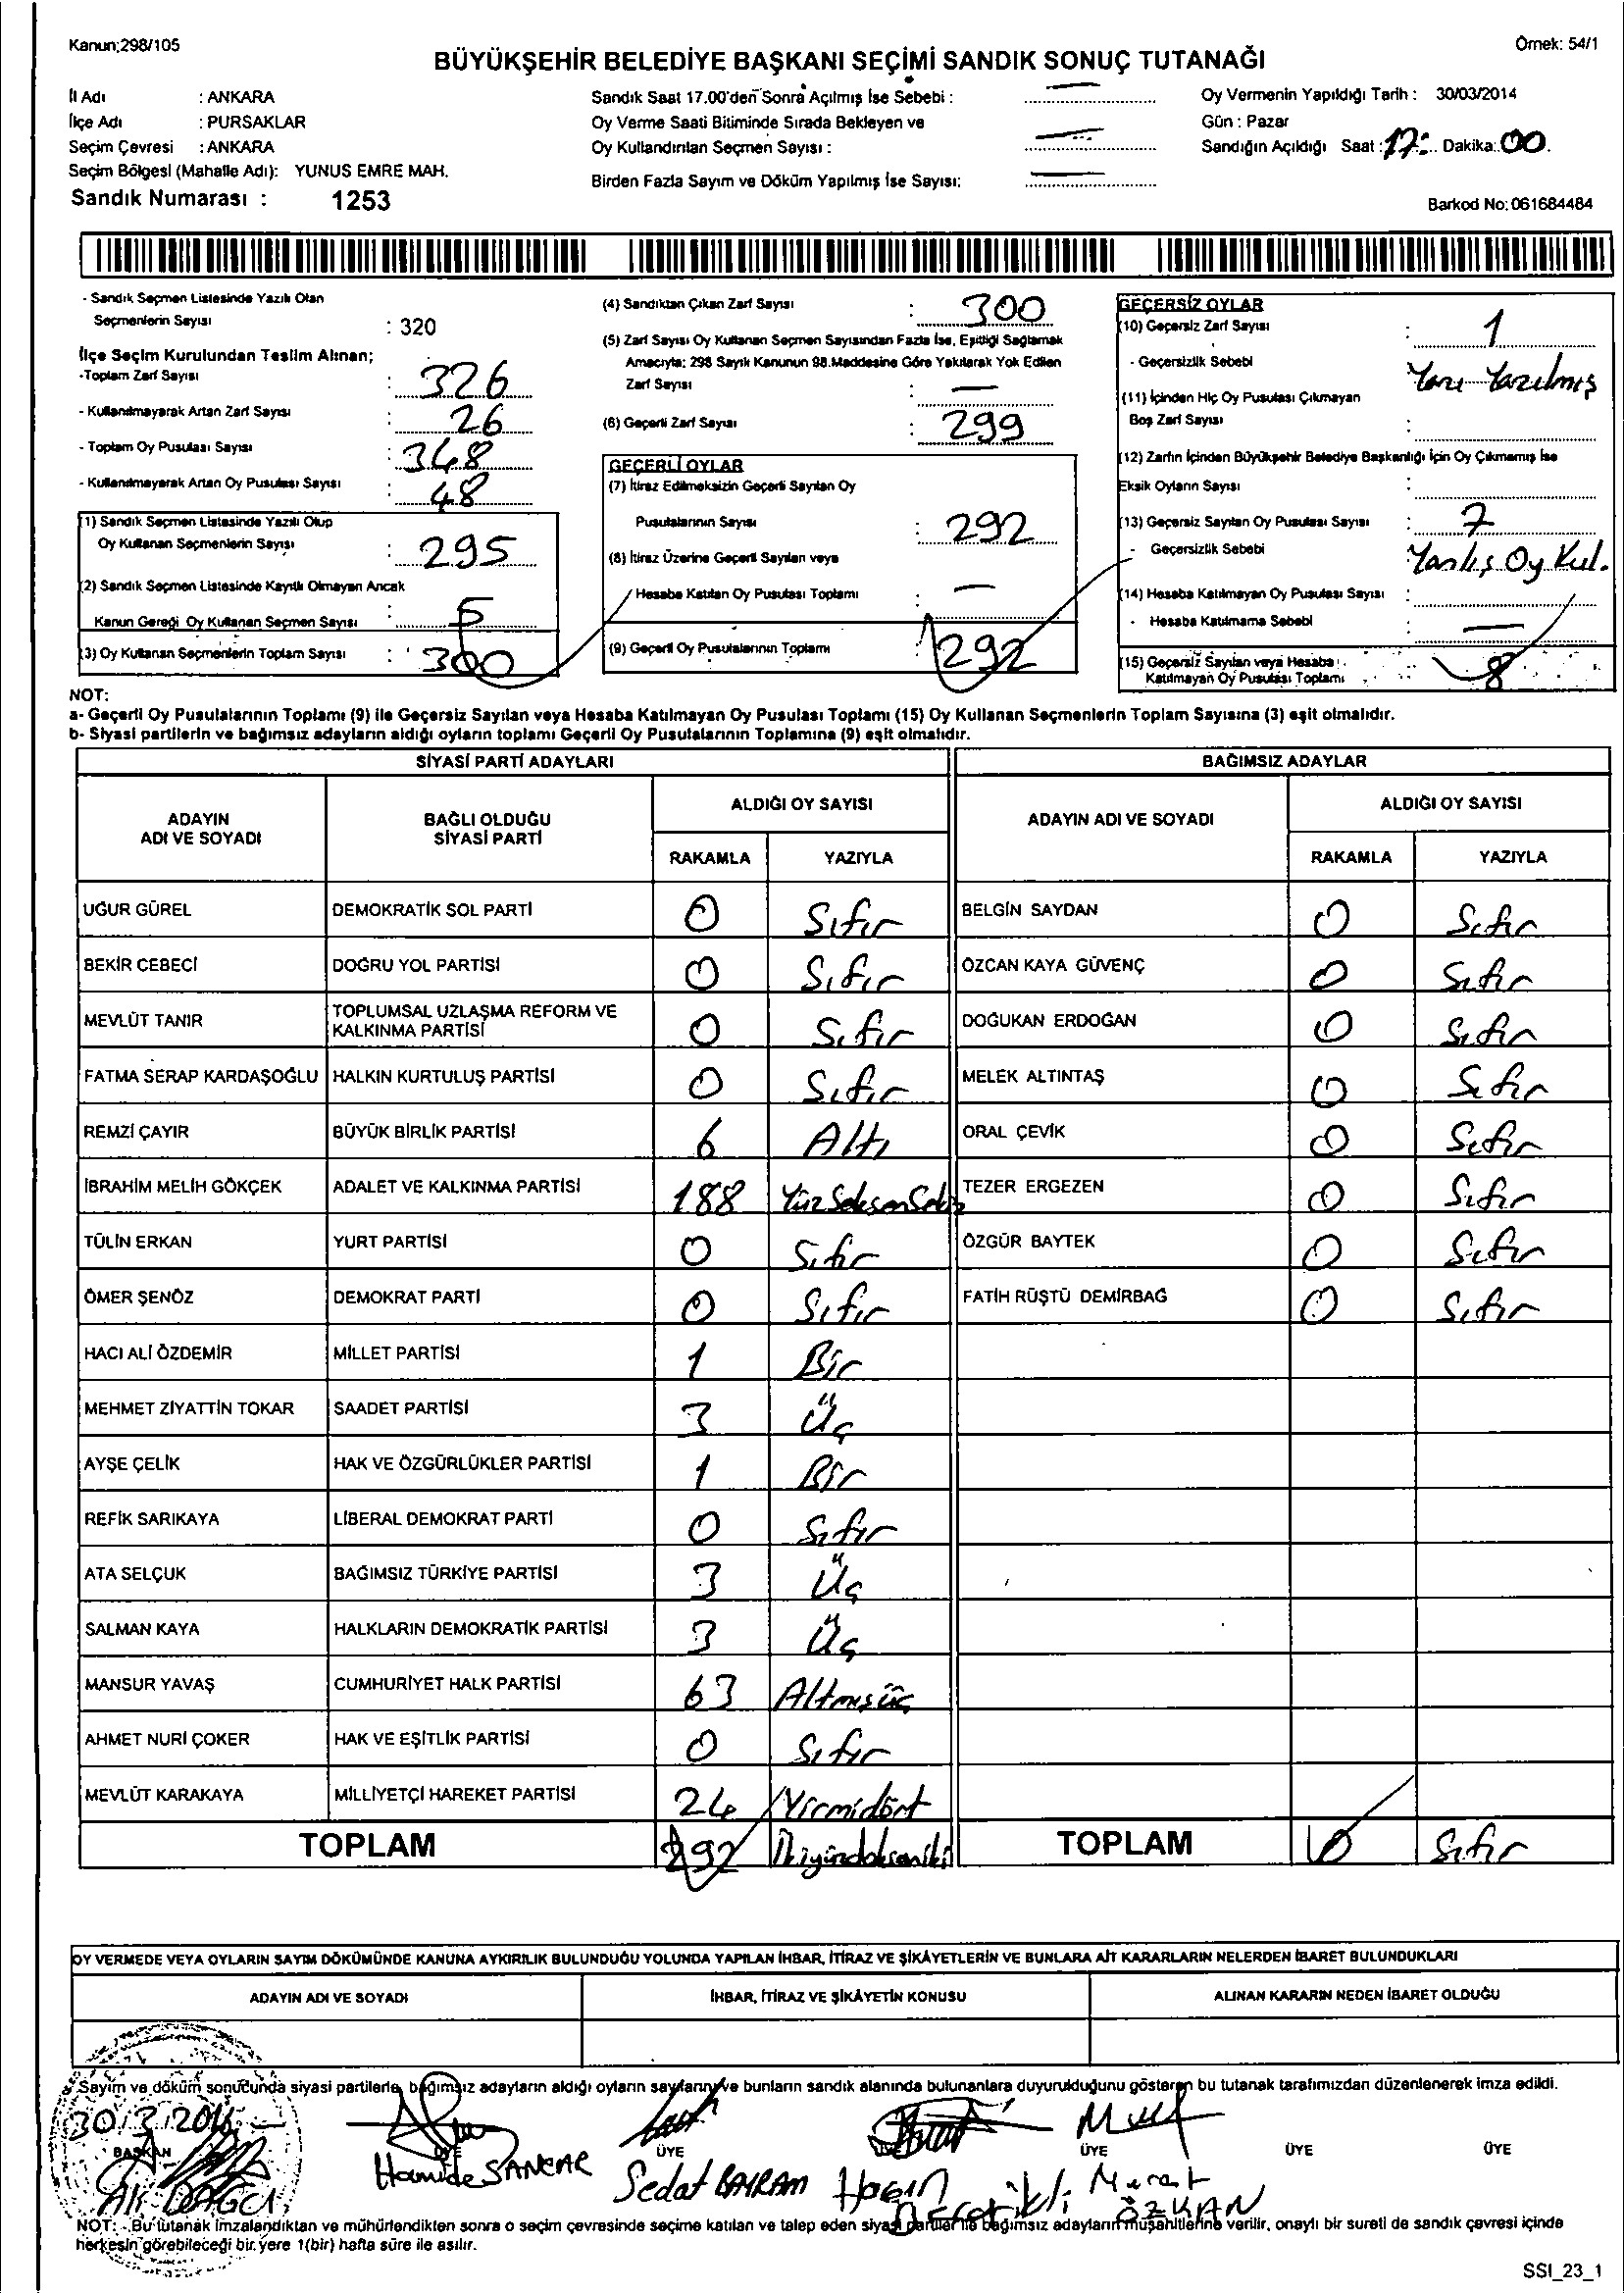 Kanun;298/105
Örnek: 54/1
BÜYÜKŞEHİR BELEDİYE BAŞKANI SEÇİMİ SANDIK SONUÇ TUTANAĞI
İl Adı : ANKARA
İlçe Adı : PURSAKLAR
Seçim Çevresi : ANKARA
Seçim Bölgesi (Mahalle Adı): YUNUS EMRE MAH.
Sandık Numarası : 1253
Sandık Saat 17.00'den Sonra Açılmış İse Sebebi : —
Oy Verme Saati Bitiminde Sırada Bekleyen ve
Oy Kullandırılan Seçmen Sayısı : —
Birden Fazla Sayım ve Döküm Yapılmış İse Sayısı: —
Oy Vermenin Yapıldığı Tarih : 30/03/2014
Gün : Pazar
Sandığın Açıldığı Saat : 17: Dakika: 00
Barkod No: 061684484
- Sandık Seçmen Listesinde Yazılı Olan
Seçmenlerin Sayısı : 320
İlçe Seçim Kurulundan Teslim Alınan;
-Toplam Zarf Sayısı : 326
- Kullanılmayarak Artan Zarf Sayısı : 26
- Toplam Oy Pusulası Sayısı : 348
- Kullanılmayarak Artan Oy Pusulası Sayısı : 48
(1) Sandık Seçmen Listesinde Yazılı Olup
Oy Kullanan Seçmenlerin Sayışı : 295
(2) Sandık Seçmen Listesinde Kayıtlı Olmayan Ancak
Kanun Gereği Oy Kullanan Seçmen Sayısı : 5
(3) Oy Kullanan Seçmenlerin Toplam Sayısı : 300
(4) Sandıktan Çıkan Zarf Sayısı : 300
(5) Zarf Sayısı Oy Kullanan Seçmen Sayısından Fazla İse, Eşitliği Sağlamak
Amacıyla; 298 Sayılı Kanunun 98.Maddesine Göre Yakılarak Yok Edilen
Zarf Sayısı : —
(6) Geçerli Zarf Sayısı : 299
GEÇERLİ OYLAR
(7) İtiraz Edilmeksizin Geçerli Sayılan Oy
Pusulalarının Sayısı : 292
(8) İtiraz Üzerine Geçerli Sayılan veya
Hesaba Katılan Oy Pusulası Toplamı : —
(9) Geçerli Oy Pusulalarının Toplamı : 292
GEÇERSİZ OYLAR
(10) Geçersiz Zarf Sayısı : 1
- Geçersizlik Sebebi Yazı Yazılmış
(11) İçinden Hiç Oy Pusulası Çıkmayan
Boş Zarf Sayısı :
(12) Zarfın İçinden Büyükşehir Belediye Başkanlığı İçin Oy Çıkmamış İse
Eksik Oyların Sayısı :
(13) Geçersiz Sayılan Oy Pusulası Sayısı : 7
- Geçersizlik Sebebi Yanlış Oy Kul.
(14) Hesaba Katılmayan Oy Pusulası Sayısı :
- Hesaba Katılmama Sebebi : —
(15) Geçersiz Sayılan veya Hesaba
Katılmayan Oy Pusulası Toplamı 8
NOT:
a- Geçerli Oy Pusulalarının Toplamı (9) ile Geçersiz Sayılan veya Hesaba Katılmayan Oy Pusulası Toplamı (15) Oy Kullanan Seçmenlerin Toplam Sayısına (3) eşit olmalıdır.
b- Siyasi partilerin ve bağımsız adayların aldığı oyların toplamı Geçerli Oy Pusulalarının Toplamına (9) eşit olmalıdır.
SİYASİ PARTİ ADAYLARI BAĞIMSIZ ADAYLAR
ADAYIN ADI VE SOYADI BAĞLI OLDUĞU SİYASİ PARTİ ALDIĞI OY SAYISI ADAYIN ADI VE SOYADI ALDIĞI OY SAYISI
RAKAMLA YAZIYLA RAKAMLA YAZIYLA
UĞUR GÜREL DEMOKRATİK SOL PARTİ 0 Sıfır BELGİN SAYDAN 0 Sıfır
BEKİR CEBECİ DOĞRU YOL PARTİSİ 0 Sıfır ÖZCAN KAYA GÜVENÇ 0 Sıfır
MEVLÜT TANIR TOPLUMSAL UZLAŞMA REFORM VE KALKINMA PARTİSİ 0 Sıfır DOĞUKAN ERDOĞAN 0 Sıfır
FATMA SERAP KARDAŞOĞLU HALKIN KURTULUŞ PARTİSİ 0 Sıfır MELEK ALTINTAŞ 0 Sıfır
REMZİ ÇAYIR BÜYÜK BİRLİK PARTİSİ 6 Altı ORAL ÇEVİK 0 Sıfır
İBRAHİM MELİH GÖKÇEK ADALET VE KALKINMA PARTİSİ 188 YüzSeksenSekiz TEZER ERGEZEN 0 Sıfır
TÜLİN ERKAN YURT PARTİSİ 0 Sıfır ÖZGÜR BAYTEK 0 Sıfır
ÖMER ŞENÖZ DEMOKRAT PARTİ 0 Sıfır FATİH RÜŞTÜ DEMİRBAĞ 0 Sıfır
HACI ALİ ÖZDEMİR MİLLET PARTİSİ 1 Bir
MEHMET ZİYATTİN TOKAR SAADET PARTİSİ 3 Üç
AYŞE ÇELİK HAK VE ÖZGÜRLÜKLER PARTİSİ 1 Bir
REFİK SARIKAYA LİBERAL DEMOKRAT PARTİ 0 Sıfır
ATA SELÇUK BAĞIMSIZ TÜRKİYE PARTİSİ 3 Üç
SALMAN KAYA HALKLARIN DEMOKRATİK PARTİSİ 3 Üç
MANSUR YAVAŞ CUMHURİYET HALK PARTİSİ 63 Altmışüç
AHMET NURİ ÇOKER HAK VE EŞİTLİK PARTİSİ 0 Sıfır
MEVLÜT KARAKAYA MİLLİYETÇİ HAREKET PARTİSİ 24 Yirmidört
TOPLAM 292 İkiyüzdoksaniki TOPLAM 0 Sıfır
OY VERMEDE VEYA OYLARIN SAYIM DÖKÜMÜNDE KANUNA AYKIRILIK BULUNDUĞU YOLUNDA YAPILAN İHBAR, İTİRAZ VE ŞİKÂYETLERİN VE BUNLARA AİT KARARLARIN NELERDEN İBARET BULUNDUKLARI
ADAYIN ADI VE SOYADI İHBAR, İTİRAZ VE ŞİKÂYETİN KONUSU ALINAN KARARIN NEDEN İBARET OLDUĞU
Sayım ve döküm sonucunda siyasi partilerle, bağımsız adayların aldığı oyların sayılarını ve bunların sandık alanında bulunanlara duyurulduğunu gösteren bu tutanak tarafımızdan düzenlenerek imza edildi.
30.3.2014
BAŞKAN ÜYE ÜYE ÜYE ÜYE ÜYE
Ali DAĞCI Hamide SANCAR Sedat BAYRAM Murat ÖZKAN
NOT: - Bu tutanak imzalandıktan ve mühürlendikten sonra o seçim çevresinde seçime katılan ve talep eden siyasi partiler ile bağımsız adayların müşahitlerine verilir, onaylı bir sureti de sandık çevresi içinde
herkesin görebileceği bir yere 1(bir) hafta süre ile asılır.
SSI_23_1